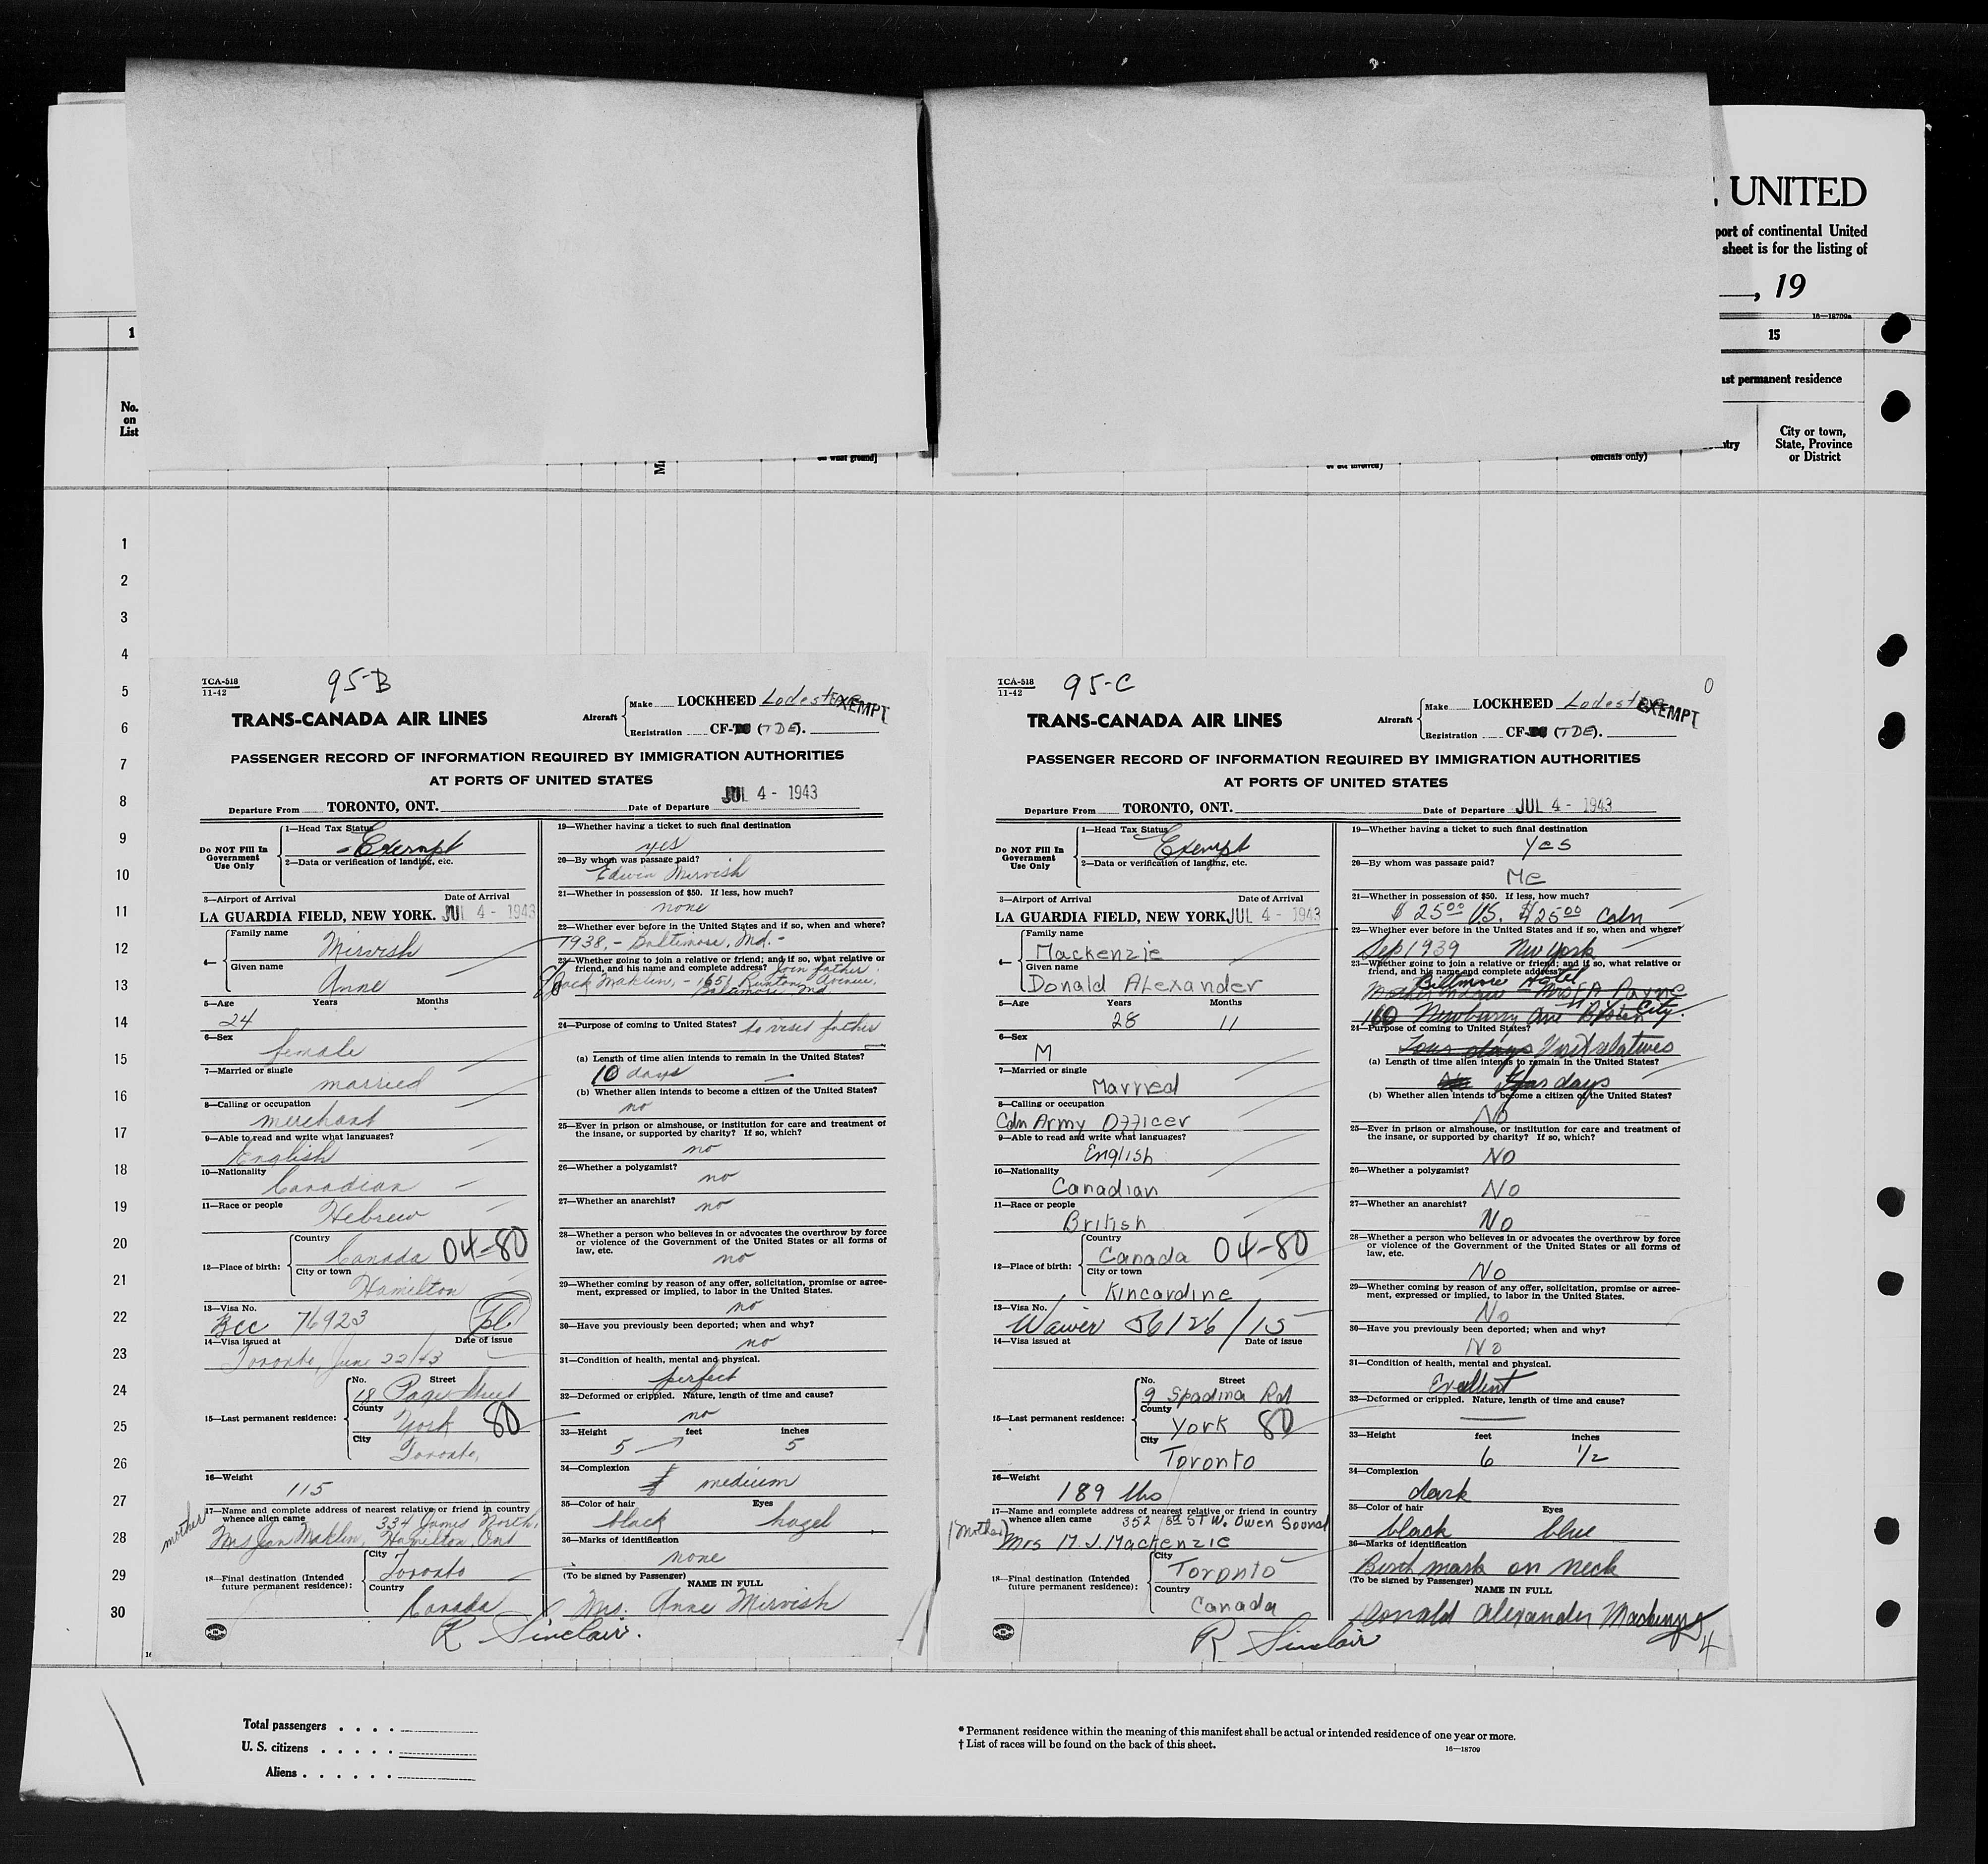 UNITED
port of continental United
sheet is for the listing of
, 19
16—18709a
1
15
ast permanent residence
No.
on
List
City or town,
State, Province
or District
on what ground]
officials only)
1
2
3
4
5
6
7
8
9
10
11
12
13
14
15
16
17
18
19
20
21
22
23
24
25
26
27
28
29
30
TCA-518
11-42
95-B
Aircraft
Make LOCKHEED Lodestar
EXEMPT
Registration CF- (TDE).
TRANS-CANADA AIR LINES
PASSENGER RECORD OF INFORMATION REQUIRED BY IMMIGRATION AUTHORITIES
AT PORTS OF UNITED STATES
Departure From TORONTO, ONT. Date of Departure JUL 4 - 1943
Do NOT Fill In
Government
Use Only
1—Head Tax Status
- Exempt
2—Data or verification of landing, etc.
3—Airport of Arrival Date of Arrival
LA GUARDIA FIELD, NEW YORK. JUL 4 - 1943
4—
Family name
Mirvish
Given name
Anne
5—Age Years Months
24
6—Sex
female
7—Married or single
married
8—Calling or occupation
merchant
9—Able to read and write what languages?
English
10—Nationality
Canadian
11—Race or people
Hebrew
12—Place of birth:
Country
Canada 04-80
City or town
Hamilton
13—Visa No.
Bcc 76923
14—Visa issued at Date of issue
Toronto, June 22/43
15—Last permanent residence:
No. Street
18 Page Street
County
York 80
City
Toronto,
16—Weight
115
17—Name and complete address of nearest relative or friend in country
whence alien came 334 James North,
mother Mrs Jan Maklin, Hamilton, Ont
18—Final destination (Intended
future permanent residence):
City
Toronto
Country
Canada
19—Whether having a ticket to such final destination
yes
20—By whom was passage paid?
Edwin Mirvish
21—Whether in possession of $50. If less, how much?
none
22—Whether ever before in the United States and if so, when and where?
1938, - Baltimore, Md. -
23—Whether going to join a relative or friend; and if so, what relative or
friend, and his name and complete address? Join father
Jack Maklin, - 1651 Ruxton Avenue,
Baltimore Md
24—Purpose of coming to United States? to visit father
(a) Length of time alien intends to remain in the United States?
10 days
(b) Whether alien intends to become a citizen of the United States?
no
25—Ever in prison or almshouse, or institution for care and treatment of
the insane, or supported by charity? If so, which?
no
26—Whether a polygamist?
no
27—Whether an anarchist?
no
28—Whether a person who believes in or advocates the overthrow by force
or violence of the Government of the United States or all forms of
law, etc.
no
29—Whether coming by reason of any offer, solicitation, promise or agree-
ment, expressed or implied, to labor in the United States.
no
30—Have you previously been deported; when and why?
no
31—Condition of health, mental and physical.
perfect
32—Deformed or crippled. Nature, length of time and cause?
no
33—Height feet inches
5 5
34—Complexion
medium
35—Color of hair Eyes
black hazel
36—Marks of identification
none
(To be signed by Passenger)
NAME IN FULL
Mrs. Anne Mirvish
R Sinclair.
TCA-518
11-42
95-C
0
Aircraft
Make LOCKHEED Lodestar
EXEMPT
Registration CF- (TDE).
TRANS-CANADA AIR LINES
PASSENGER RECORD OF INFORMATION REQUIRED BY IMMIGRATION AUTHORITIES
AT PORTS OF UNITED STATES
Departure From TORONTO, ONT. Date of Departure JUL 4 - 1943
Do NOT Fill In
Government
Use Only
1—Head Tax Status
Exempt
2—Data or verification of landing, etc.
3—Airport of Arrival Date of Arrival
LA GUARDIA FIELD, NEW YORK JUL 4 - 1943
4—
Family name
Mackenzie
Given name
Donald Alexander
5—Age Years Months
28 11
6—Sex
M
7—Married or single
Married
8—Calling or occupation
Cdn Army Officer
9—Able to read and write what languages?
English
10—Nationality
Canadian
11—Race or people
British
12—Place of birth:
Country
Canada 04-80
City or town
Kincardine
13—Visa No.
Waiver 56126/15
14—Visa issued at Date of issue
15—Last permanent residence:
No. Street
9 Spadina Rd
County
York 80
City
Toronto
16—Weight
189 lbs
17—Name and complete address of nearest relative or friend in country
whence alien came 352 8th ST W. Owen Sound
(Mother) Mrs M. J. Mackenzie
18—Final destination (Intended
future permanent residence):
City
Toronto
Country
Canada
19—Whether having a ticket to such final destination
Yes
20—By whom was passage paid?
Me
21—Whether in possession of $50. If less, how much?
$ 25.00 US. $25.00 Cdn
22—Whether ever before in the United States and if so, when and where?
Sep 1939 New York
23—Whether going to join a relative or friend; and if so, what relative or
friend, and his name and complete address?
Biltmore Hotel
Mother in law - Mrs Payne
160 Newburry Ave Boston City.
24—Purpose of coming to United States?
Four days Visit relatives
(a) Length of time alien intends to remain in the United States?
days
(b) Whether alien intends to become a citizen of the United States?
No
25—Ever in prison or almshouse, or institution for care and treatment of
the insane, or supported by charity? If so, which?
No
26—Whether a polygamist?
No
27—Whether an anarchist?
No
28—Whether a person who believes in or advocates the overthrow by force
or violence of the Government of the United States or all forms of
law, etc.
No
29—Whether coming by reason of any offer, solicitation, promise or agree-
ment, expressed or implied, to labor in the United States.
No
30—Have you previously been deported; when and why?
No
31—Condition of health, mental and physical.
Excellent
32—Deformed or crippled. Nature, length of time and cause?
33—Height feet inches
6 1/2
34—Complexion
dark
35—Color of hair Eyes
black blue
36—Marks of identification
Birth mark on neck
(To be signed by Passenger)
NAME IN FULL
Donald Alexander Mackenzie
R Sinclair
4
Total passengers . . . .
U. S. citizens . . . . .
Aliens . . . . . .
* Permanent residence within the meaning of this manifest shall be actual or intended residence of one year or more.
† List of races will be found on the back of this sheet.
16—18709